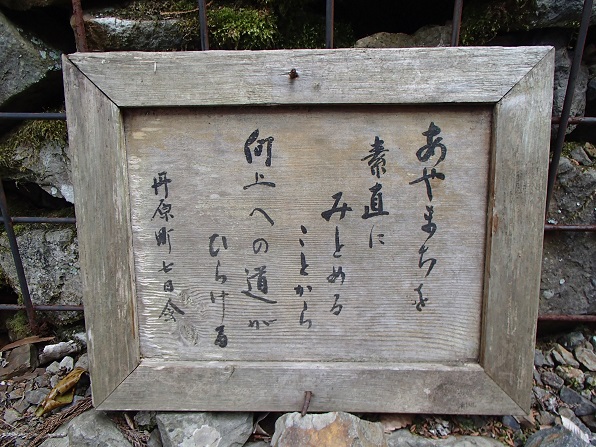 あやまちを
素直に
みとめる
ことから
向上への道が
ひらける
丹原町 七日会